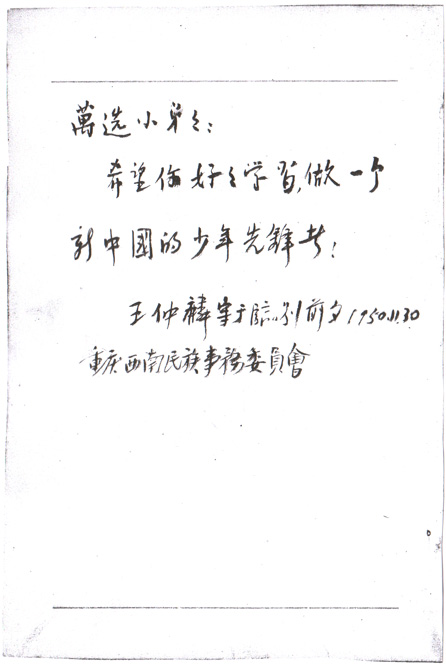 萬选小弟弟：
希望你好好学習，做一个
新中國的少年先鋒者！
王仲麟 于臨别前夕1950.11.30
重庆西南民族事務委員會